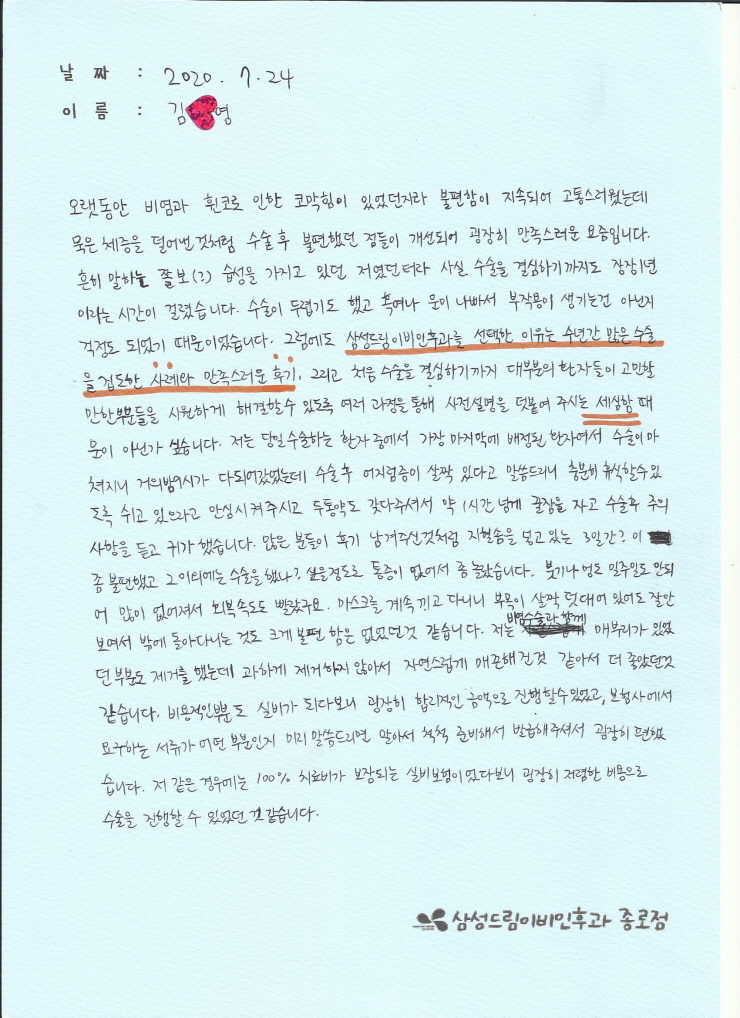 날 짜 : 2020. 7. 24
이 름 : 김 영
오랫동안 비염과 휜코로 인한 코막힘이 있었던지라 불편함이 지속되어 고통스러웠는데
묵은 체증을 덜어낸것처럼 수술 후 불편했던 점들이 개선되어 굉장히 만족스러운 요즘입니다.
흔히 말하는 쫄보(?) 습성을 가지고 있던 저였던터라 사실 수술을 결심하기까지도 장장1년
이라는 시간이 걸렸습니다. 수술이 두렵기도 했고 혹여나 운이 나빠서 부작용이 생기는건 아닌지
걱정도 되었기 때문이었습니다. 그럼에도 삼성드림이비인후과를 선택한 이유는 수년간 많은 수술
을 집도한 사례와 만족스러운 후기, 그리고 처음 수술을 결심하기까지 대부분의 환자들이 고민할
만한부분들을 시원하게 해결할수 있도록 여러 과정을 통해 사전설명을 덧붙여 주시는 세심함 때
문이 아닌가 싶습니다. 저는 당일수술하는 환자 중에서 가장 마지막에 배정된 환자여서 수술이 마
쳐지니 거의밤9시가 다되어갔었는데 수술 후 어지럼증이 살짝 있다고 말씀드리니 충분히 휴식할수 있
도록 쉬고 있으라고 안심시켜주시고 두통약도 갖다주셔서 약 1시간 넘게 꿀잠을 자고 수술후 주의
사항을 듣고 귀가 했습니다. 많은 분들이 후기 남겨주신것처럼 지혈솜을 넣고 있는 3일간? 이
좀 불편했고 그 이외에는 수술을 했나? 싶을정도로 통증이 없어서 좀 놀랐습니다. 붓기나 멍도 일주일도 안되
어 많이 없어져서 회복속도도 빨랐구요. 마스크를 계속 끼고 다니니 부목이 살짝 덧대어 있어도 잘안
보여서 밖에 돌아다니는 것도 크게 불편 함은 없었던것 같습니다. 저는 비염수술과 함께 매부리가 있었
던 부분도 제거를 했는데 과하게 제거하지 않아서 자연스럽게 매끈해진것 같아서 더 좋았던것
같습니다. 비용적인부분도 실비가 되다보니 굉장히 합리적인 금액으로 진행할수있었고, 보험사에서
요구하는 서류가 어떤 부분인지 미리 말씀드리면 알아서 척척 준비해서 발급해주셔서 굉장히 편했
습니다. 저 같은 경우에는 100% 치료비가 보장되는 실비보험이었다보니 굉장히 저렴한 비용으로
수술을 진행할 수 있었던 것 같습니다.
삼성드림이비인후과 종로점